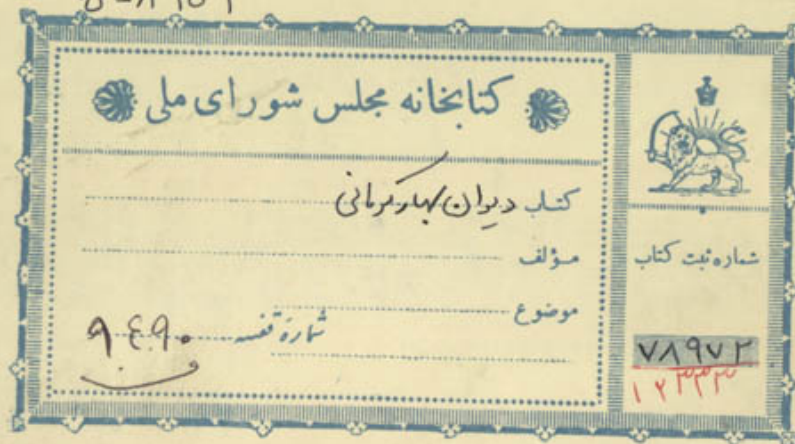 کتابخانه مجلس شورای ملی
کتاب دیوان بهار کرمانی
مؤلف
موضوع
شمارهٔ قفسه ۹۴۹۰
ف
شماره ثبت کتاب
۷۸۹۷۲
۱۲۳۳۳